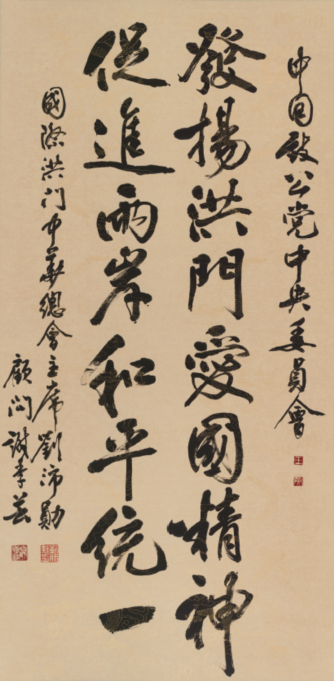 中国致公党中央委員會
發揚洪門愛國精神
促進兩岸和平統一
國際洪门中華總會主席劉沛勛
顧问謝李芸